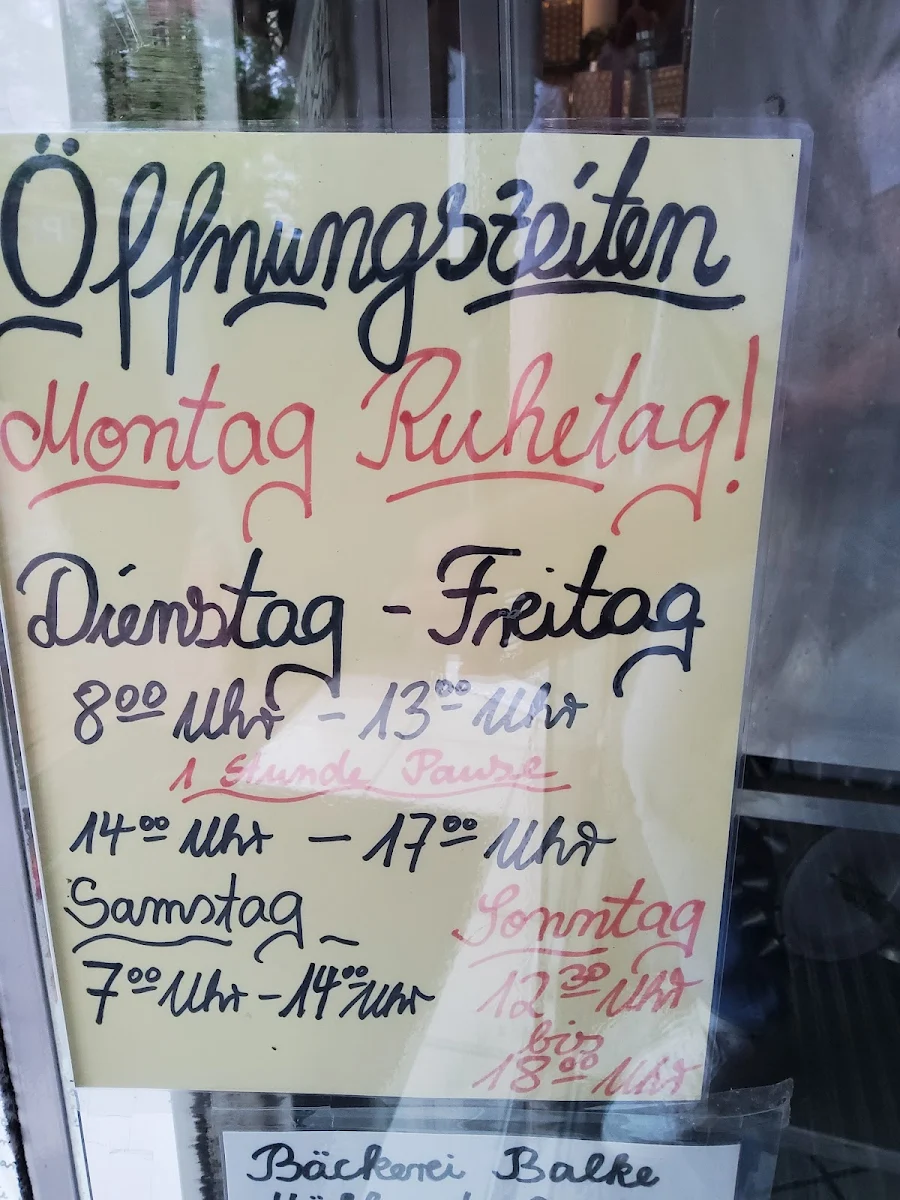 Öffnungszeiten
Montag Ruhetag!
Dienstag - Freitag
8⁰⁰ Uhr - 13⁰⁰ Uhr
1 Stunde Pause
14⁰⁰ Uhr - 17⁰⁰ Uhr
Samstag
7⁰⁰ Uhr - 14⁰⁰ Uhr
Sonntag
12³⁰ Uhr
bis
18⁰⁰ Uhr
Bäckerei Balke